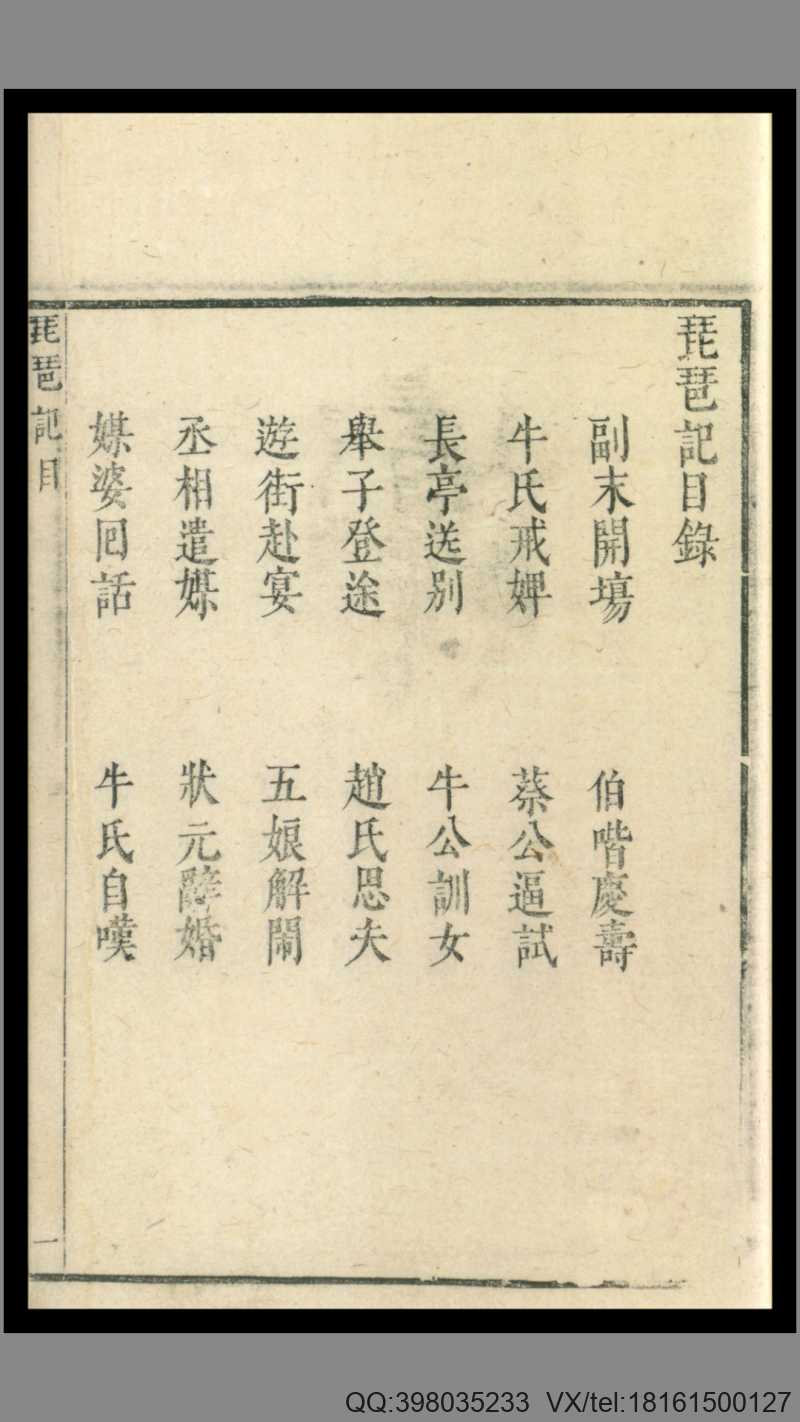 琵琶記目錄
副末開場 伯喈慶壽
牛氏戒婢 蔡公逼試
長亭送別 牛公訓女
舉子登途 趙氏思夫
遊街赴宴 五娘解鬧
丞相遣媒 狀元辭婚
媒婆回話 牛氏自嘆
琵琶記目 一
QQ:398035233 VX/tel:18161500127